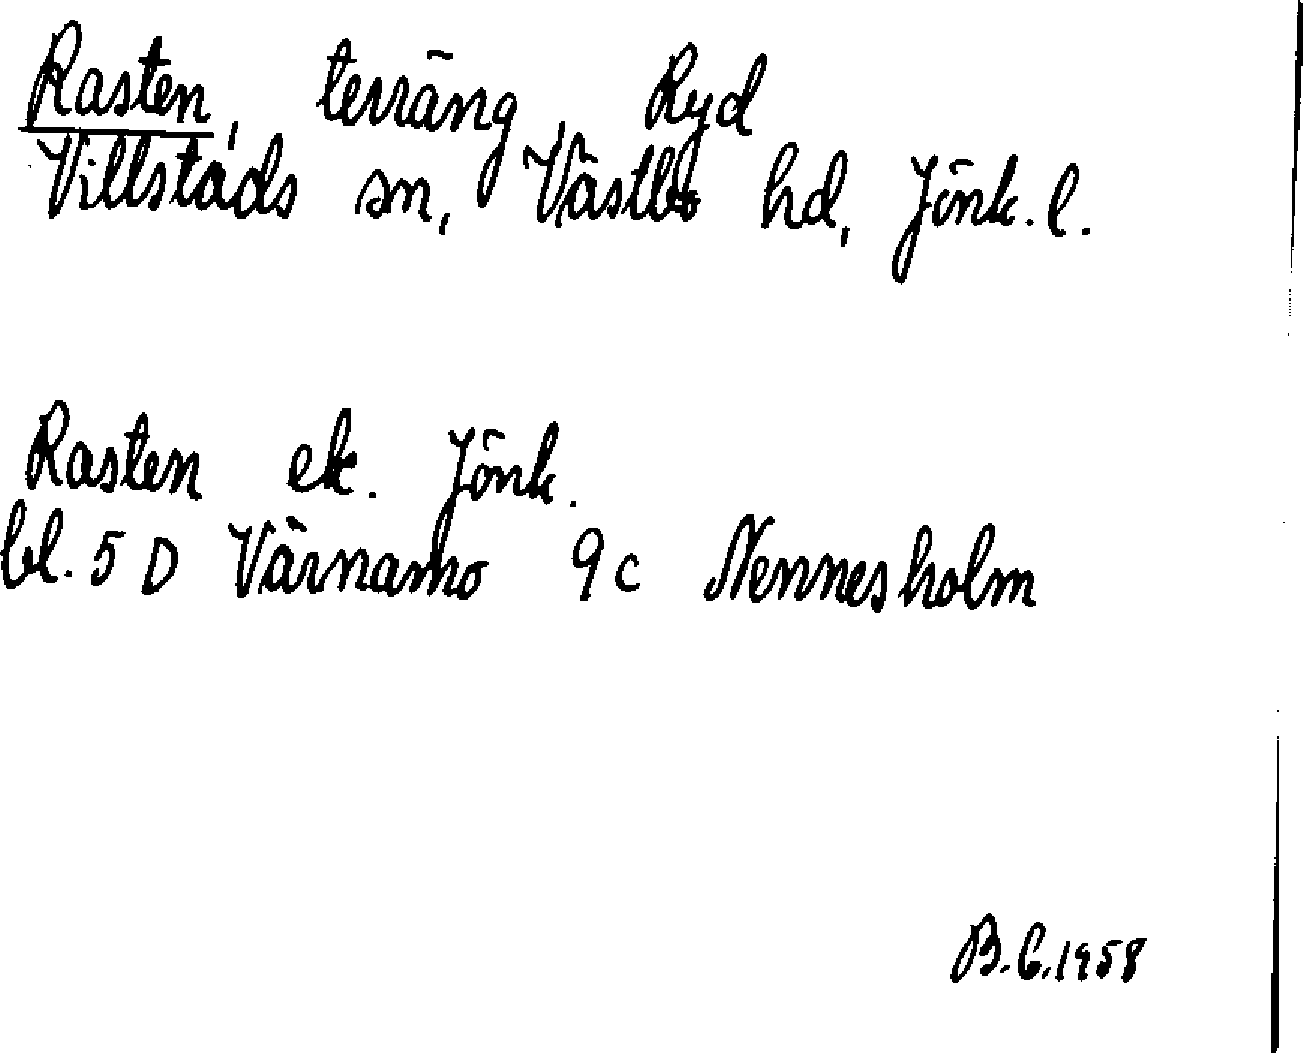 Rasten, terräng, Ryd
Villstads sn, Västbo hd, Jönk. l.
Rasten ek. Jönk.
bl. 5 D Värnamo 9 c Nennesholm
B.G. 1958